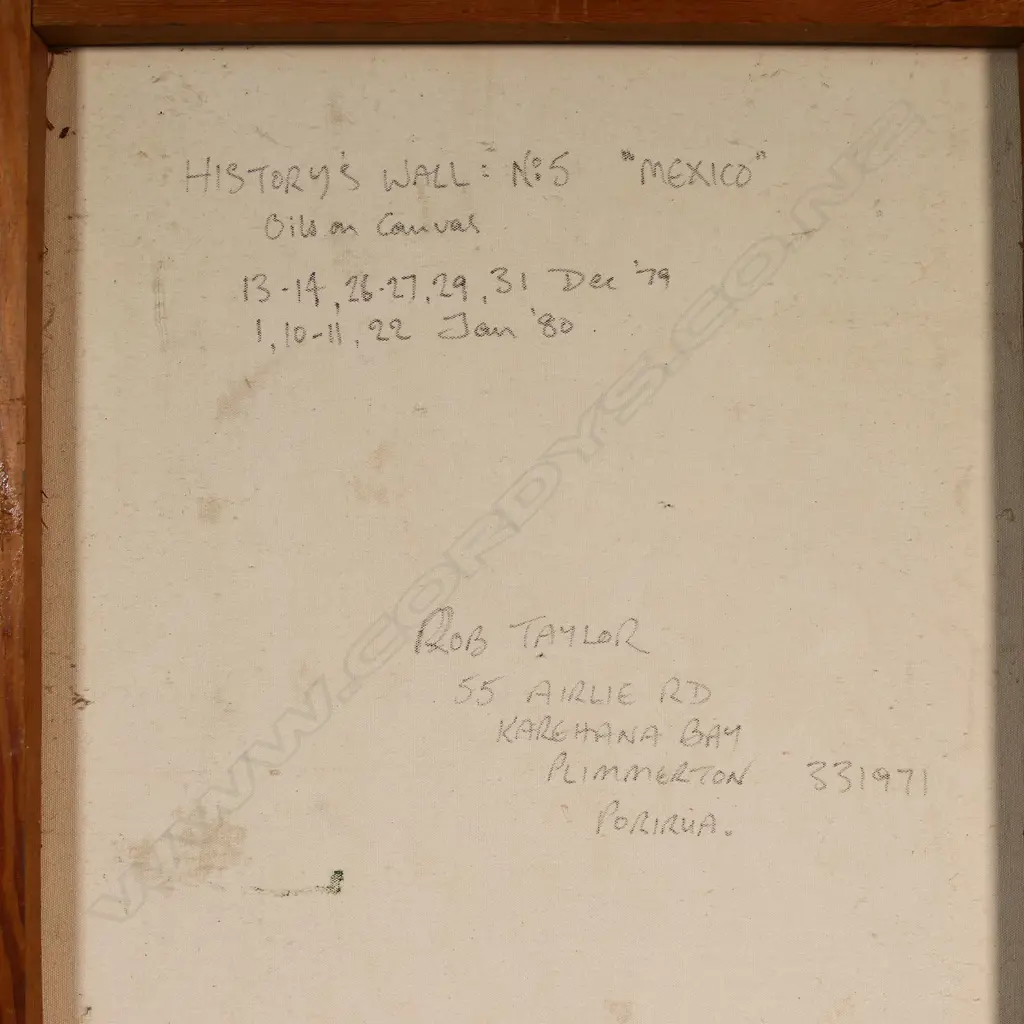 HISTORY'S WALL: No:5 "MEXICO"
Oils on Canvas
13-14, 26-27, 29, 31 Dec '79
1, 10-11, 22 Jan '80.
ROB TAYLOR
55 AIRLIE RD
KAREHANA BAY
PLIMMERTON 331971
PORIRUA.
WWW.CORDYS.CO.NZ